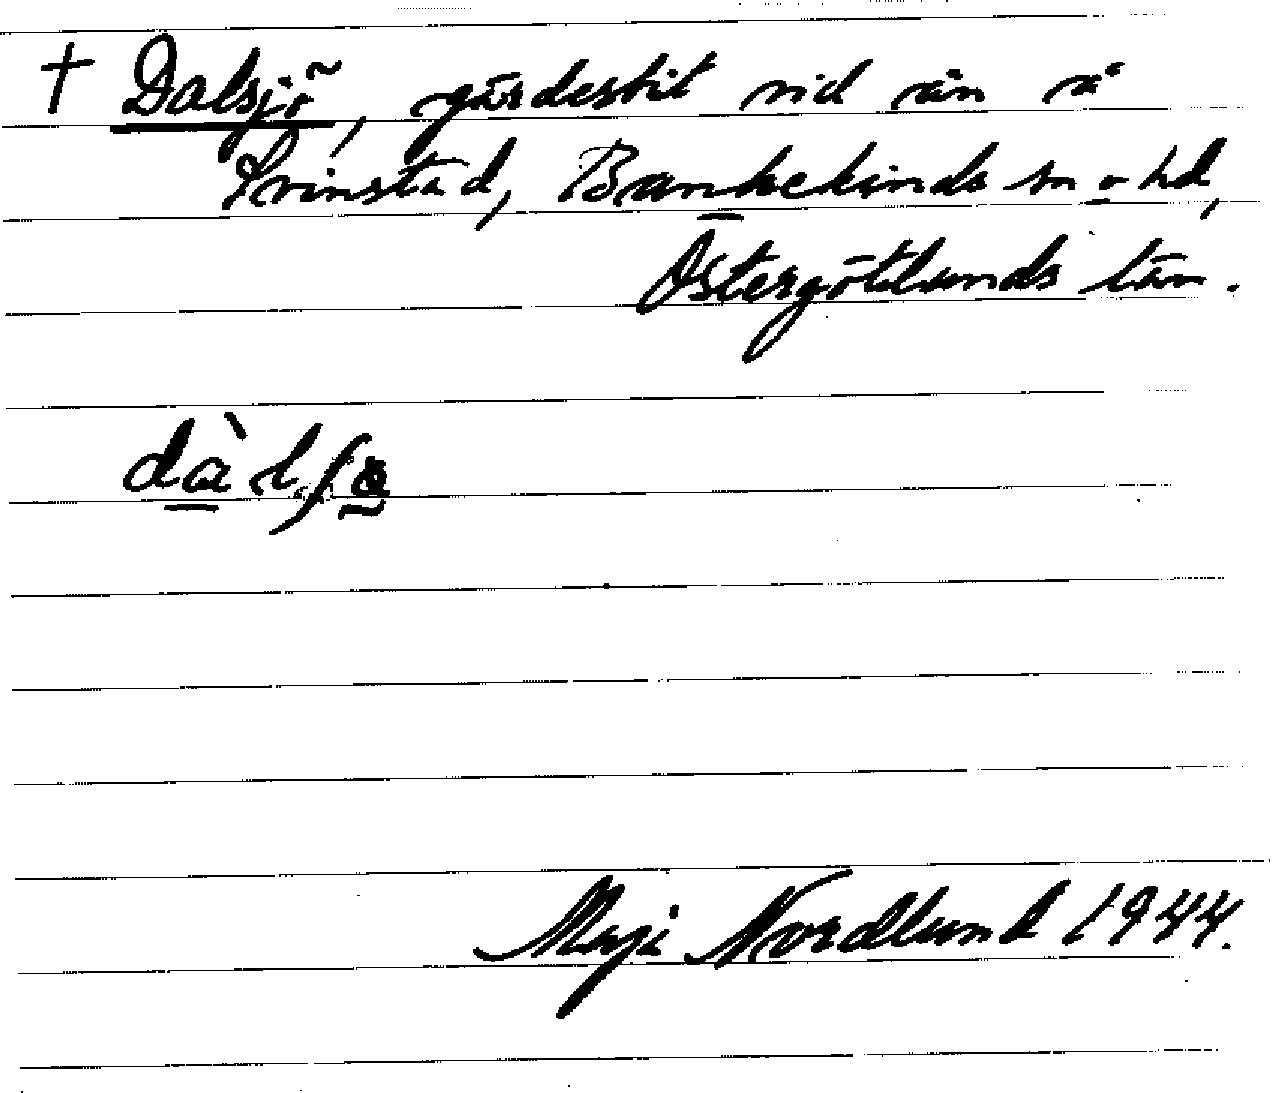 † Dalsjö, gärdesbit vid ån å
Svinstad, Bankekinds sn o hd,
Östergötlands län.
dàlʃɵ
Maji Nordlund 1944.